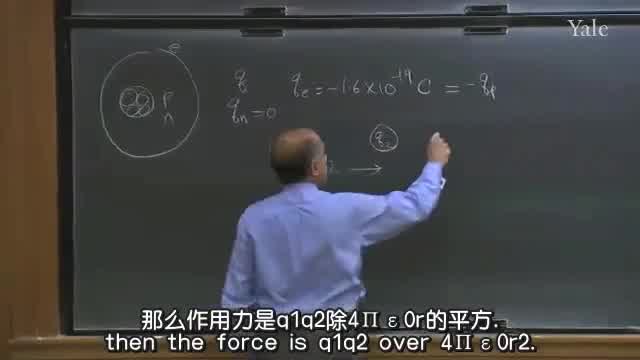 Yale
e
q
q_e = -1.6 × 10^-19 C = -q_p
P
n
q_n = 0
q_2
那么作用力是q1q2除4Πε0r的平方.
then the force is q1q2 over 4Πε0r2.